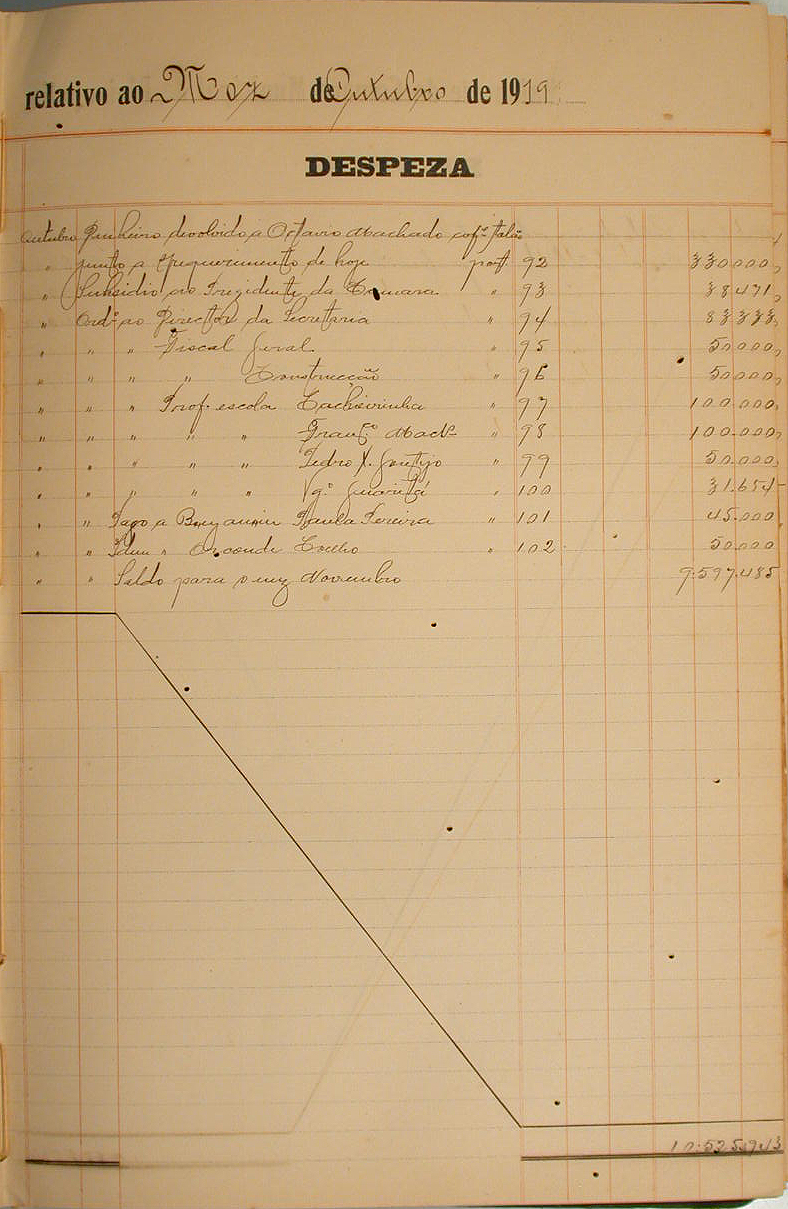 relativo ao Mez de Outubro de 1919
DESPEZA
Outubro Dinheiro devolvido a Octavio Machado cofe. talão
" junto a requerimento de hoje port 92 330000
" Subsidio ao Prezidente da Camara " 93 38471
" Ordo ao Director da Secretaria " 94 83333
" " " Fiscal Geral " 95 50000
" " " " Construcção " 96 50000
" " " Prof. escola Cachoirinha " 97 100.000
" " " " " Franco Macho " 98 100.000
" " " " " Pedro X. " 99 50.000
" " " " " Guaritá " 100 31.654
" " Pago a Benjamin Paula Pereira " 101 45.000
" " Idem " Coelho " 102 50.000
" " Saldo para o mez Novembro 9:597.485
10:525.943